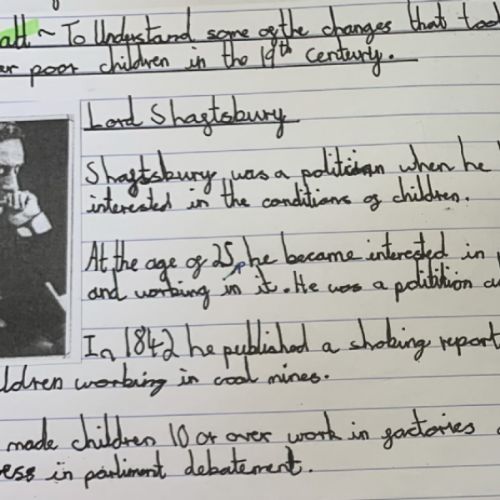 To Understand some of the changes that
poor children in the 19th Century.
Lord Shaftsbury
Shaftsbury was a politician when he
interested in the conditions of children.
At the age of 25, he became interested in
and working in it. He was a politition
In 1842 he published a shoking report
ildren working in coal mines.
made children 10 or over work in factories
ess in parliment debatement.